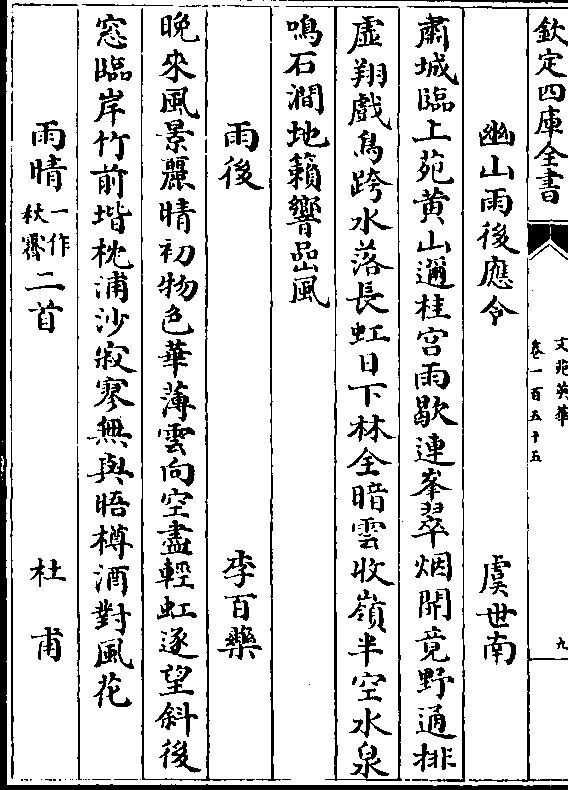 欽定四庫全書
文苑英華
卷一百五十五
九
幽山雨後應令 虞世南
肅城臨上苑黄山邇桂宫雨歇連峯翠烟開竟野通排
虚翔戲鳥跨水落長虹日下林全暗雲收嶺半空水泉
鳴石澗地籟響嵒風
雨後 李百藥
晚來風景麗晴初物色華薄雲向空盡輕虹逐望斜後
窓臨岸竹前堦枕浦沙寂寥無與晤樽酒對風花
雨晴一作秋霽二首 杜甫